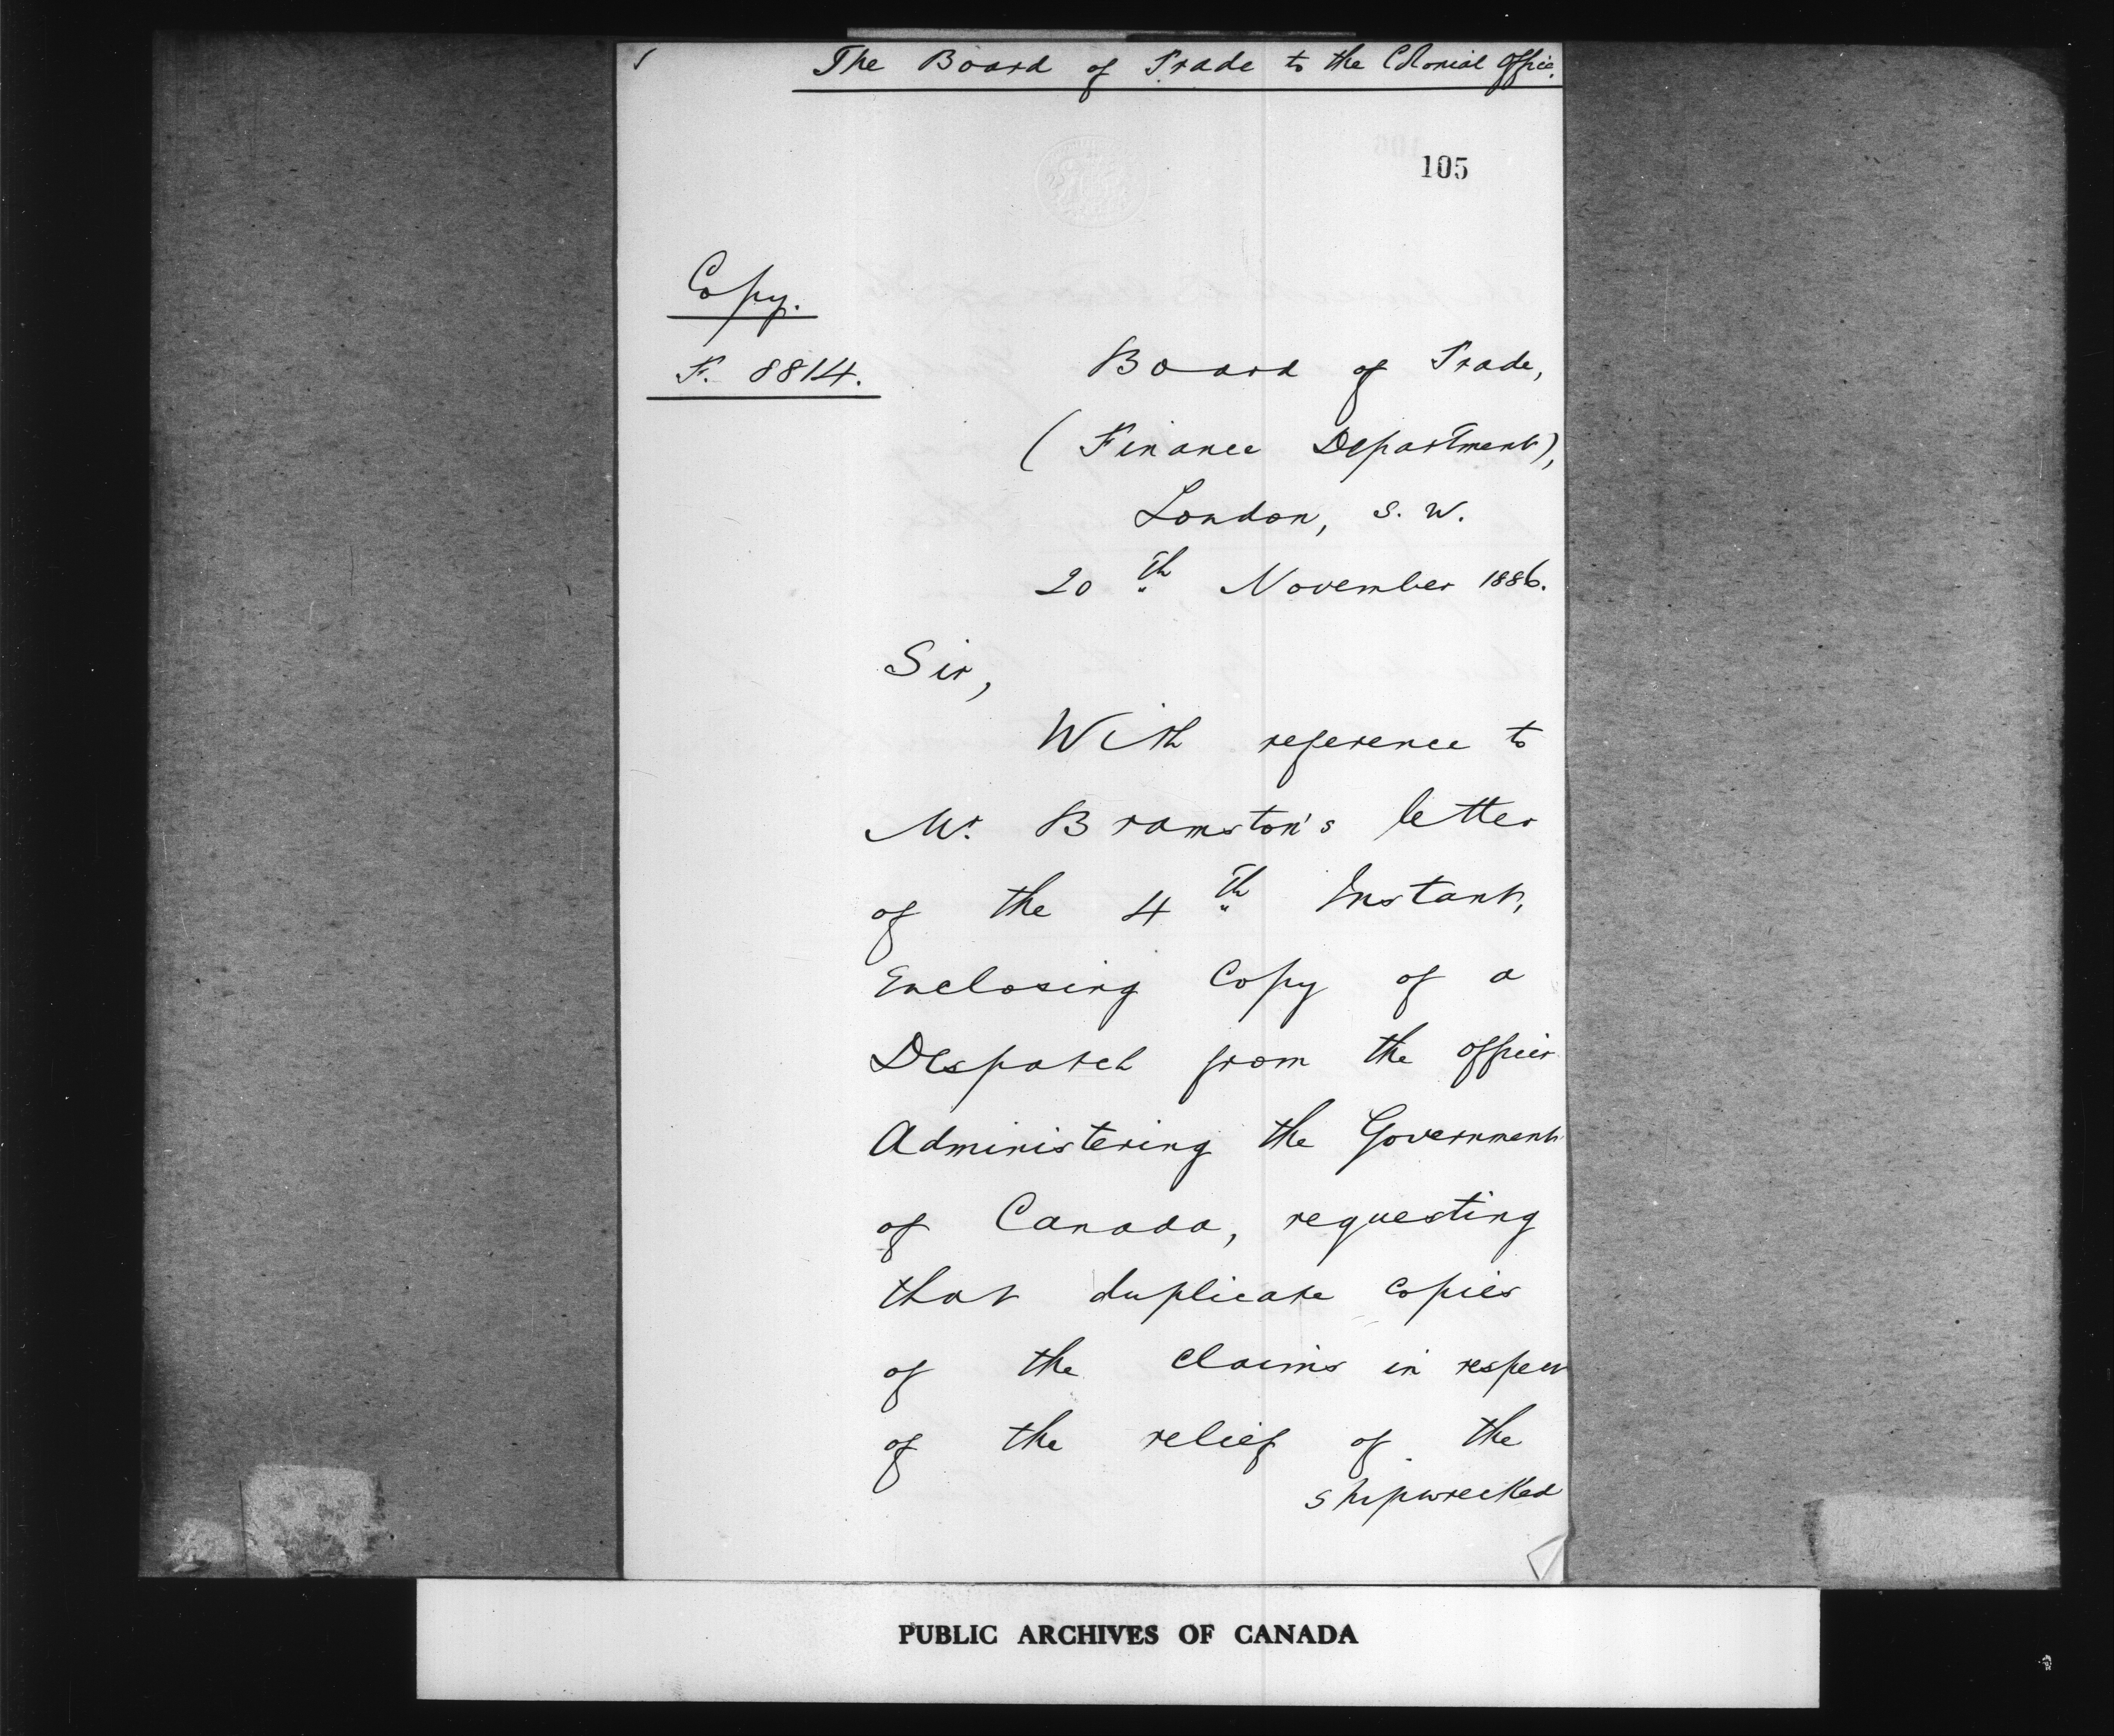 The Board of Trade to the Colonial Office.
105
Copy.
F. 8814.
Board of Trade,
(Finance Department),
London, S. W.
20th November 1886.
Sir,
With reference to
Mr. Bramston's letter
of the 4th Instant,
Enclosing Copy of a
Despatch from the Officer
Administering the Government
of Canada, requesting
that duplicate copies
of the Claims in respect
of the relief of the
shipwrecked
PUBLIC ARCHIVES OF CANADA